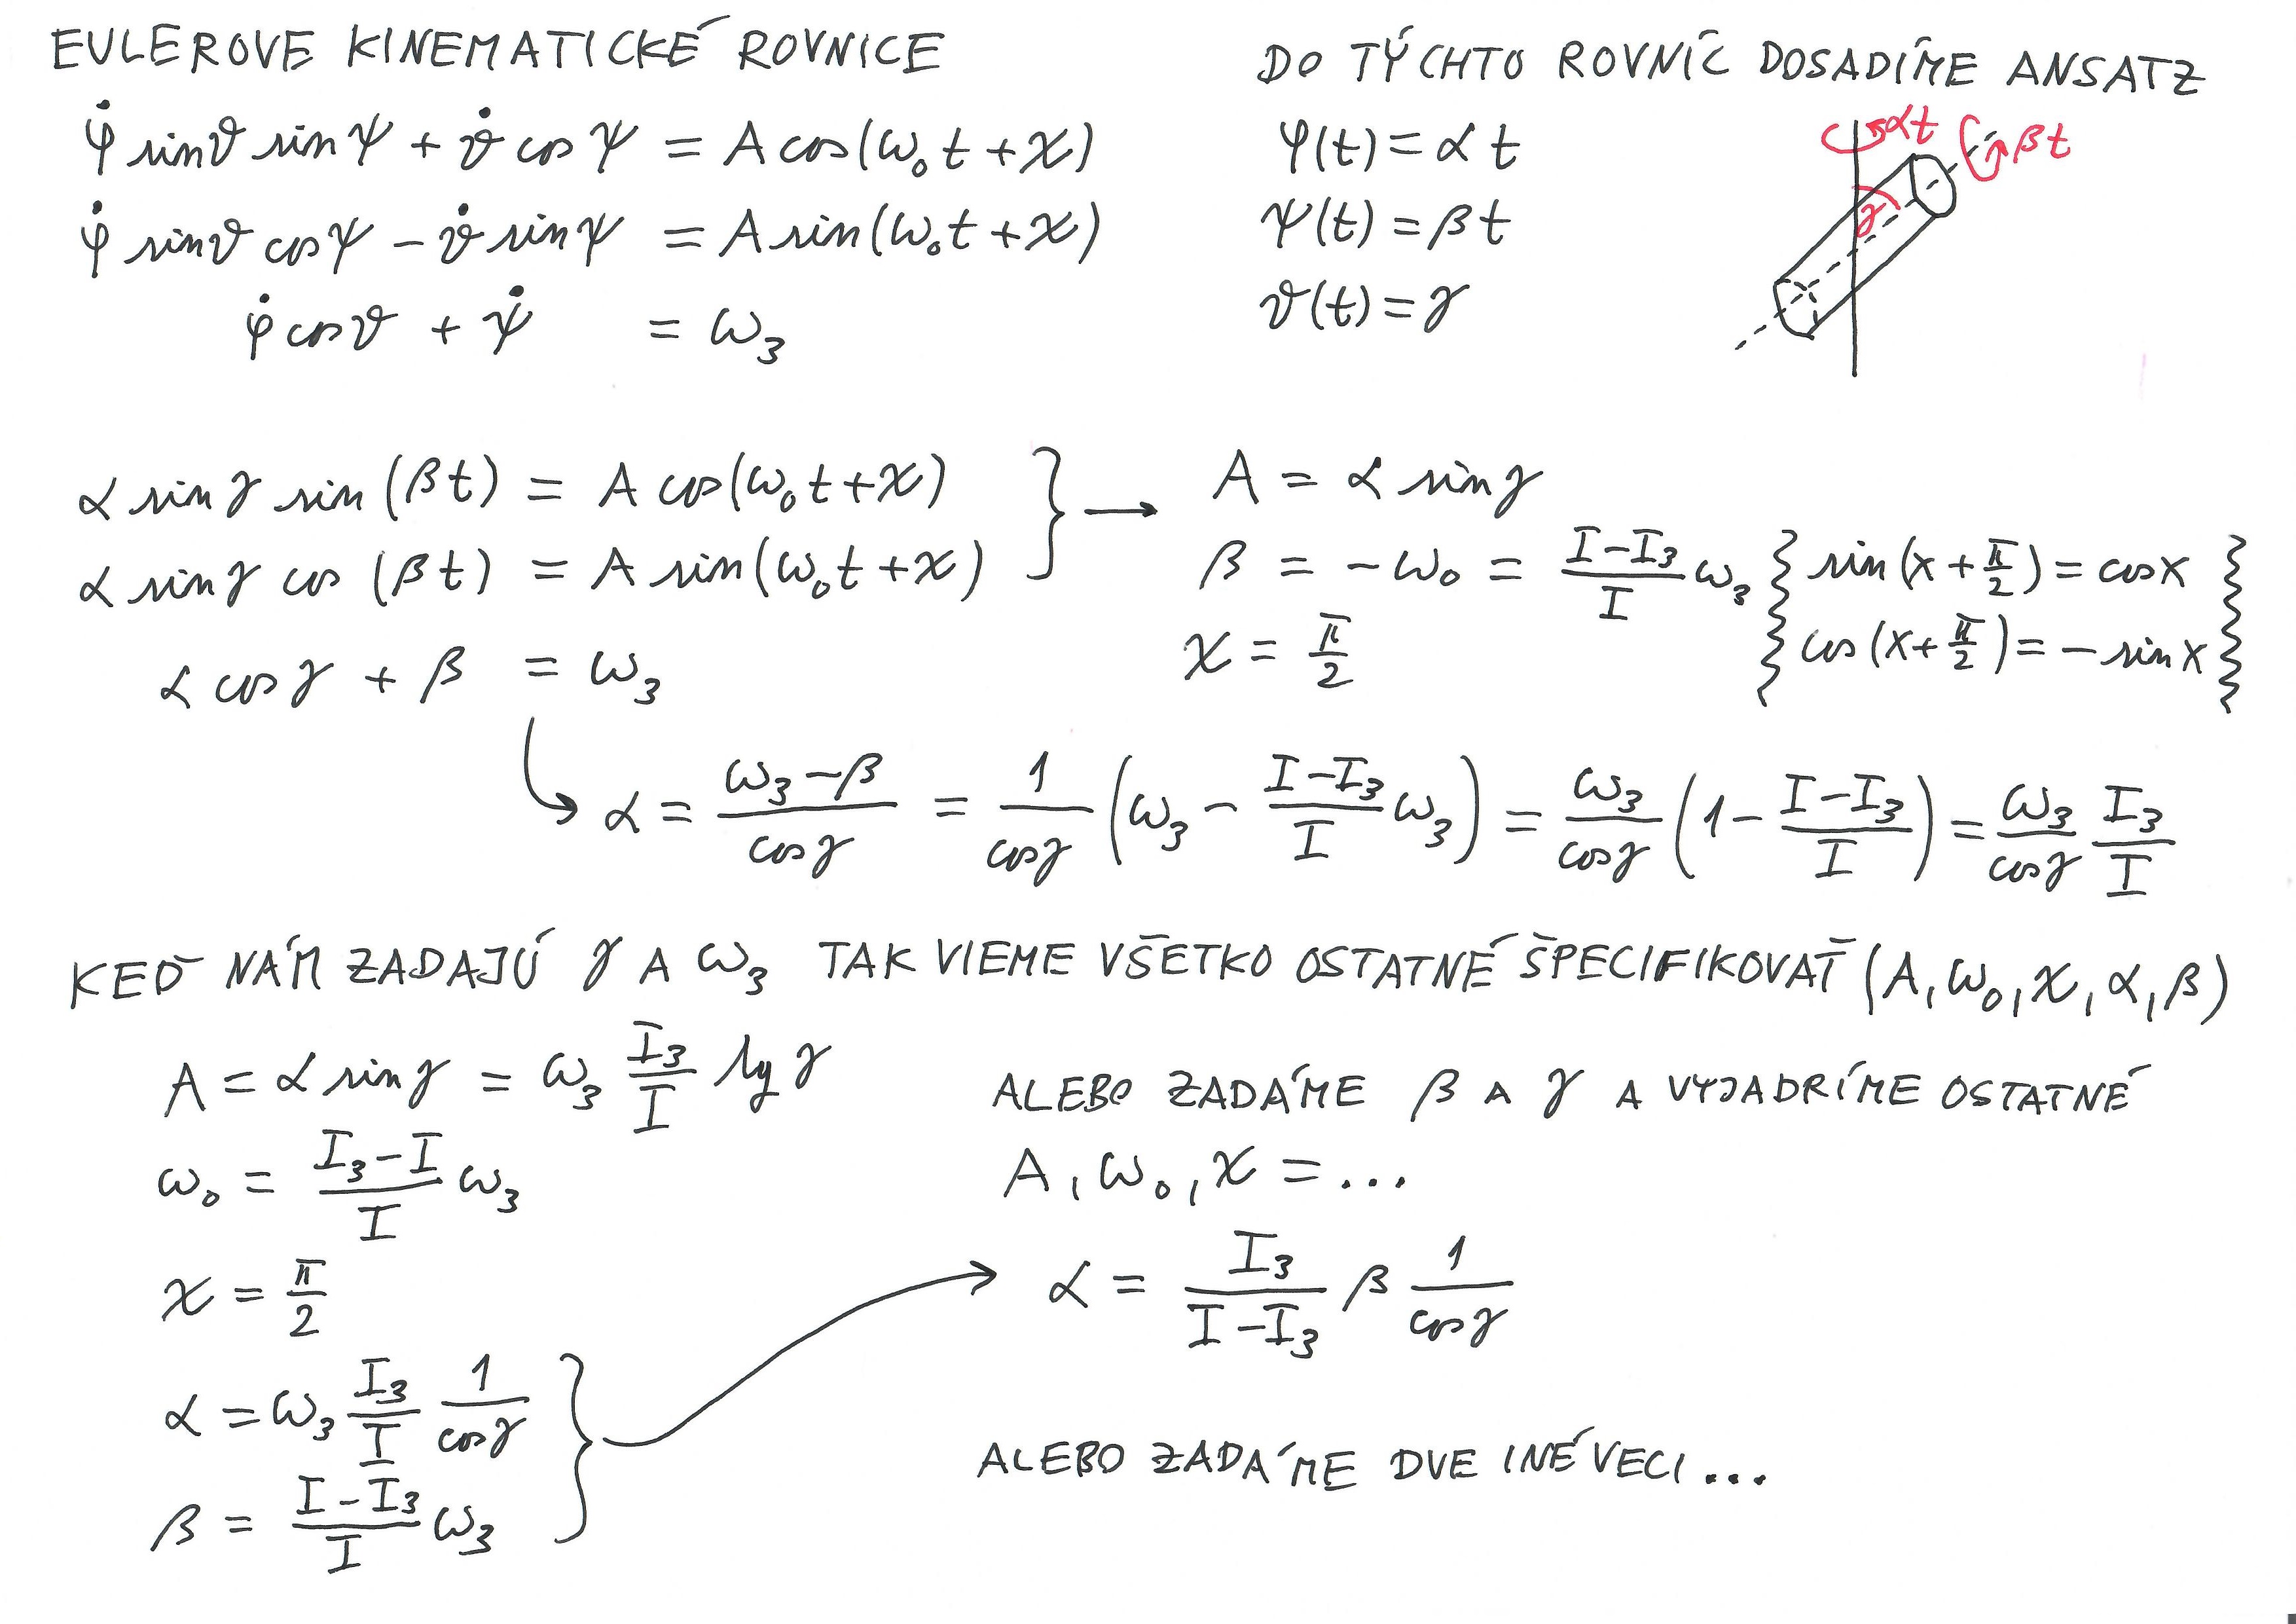 EULEROVE KINEMATICKÉ ROVNICE
φ̇ sinϑ sin ψ + ϑ̇ cos ψ = A cos(ω₀t + χ)
φ̇ sinϑ cosψ − ϑ̇ sin ψ = A sin(ω₀t + χ)
φ̇ cosϑ + ψ̇ = ω₃
DO TÝCHTO ROVNÍC DOSADÍME ANSATZ
φ(t) = α t
ψ(t) = β t
ϑ(t) = γ
αt
βt
γ
α sin γ sin (βt) = A cos(ω₀t + χ)
α sin γ cos (βt) = A sin(ω₀t + χ)
α cos γ + β = ω₃
} → A = α sin γ
β = −ω₀ = (I−I₃)/I ω₃
χ = π/2
{ sin(x + π/2) = cos x
cos(x + π/2) = − sin x }
α = (ω₃−β)/cosγ = 1/cosγ (ω₃ − (I−I₃)/I ω₃) = ω₃/cosγ (1 − (I−I₃)/I) = ω₃/cosγ I₃/I
KEĎ NÁM ZADAJÚ γ A ω₃ TAK VIEME VŠETKO OSTATNÉ ŠPECIFIKOVAŤ (A, ω₀, χ, α, β)
A = α sin γ = ω₃ I₃/I tg γ
ω₀ = (I₃−I)/I ω₃
χ = π/2
α = ω₃ I₃/I 1/cosγ
β = (I−I₃)/I ω₃
ALEBO ZADÁME β A γ A VYJADRÍME OSTATNÉ
A, ω₀, χ = ...
α = I₃/(I−I₃) β 1/cosγ
ALEBO ZADÁME DVE INÉ VECI ...